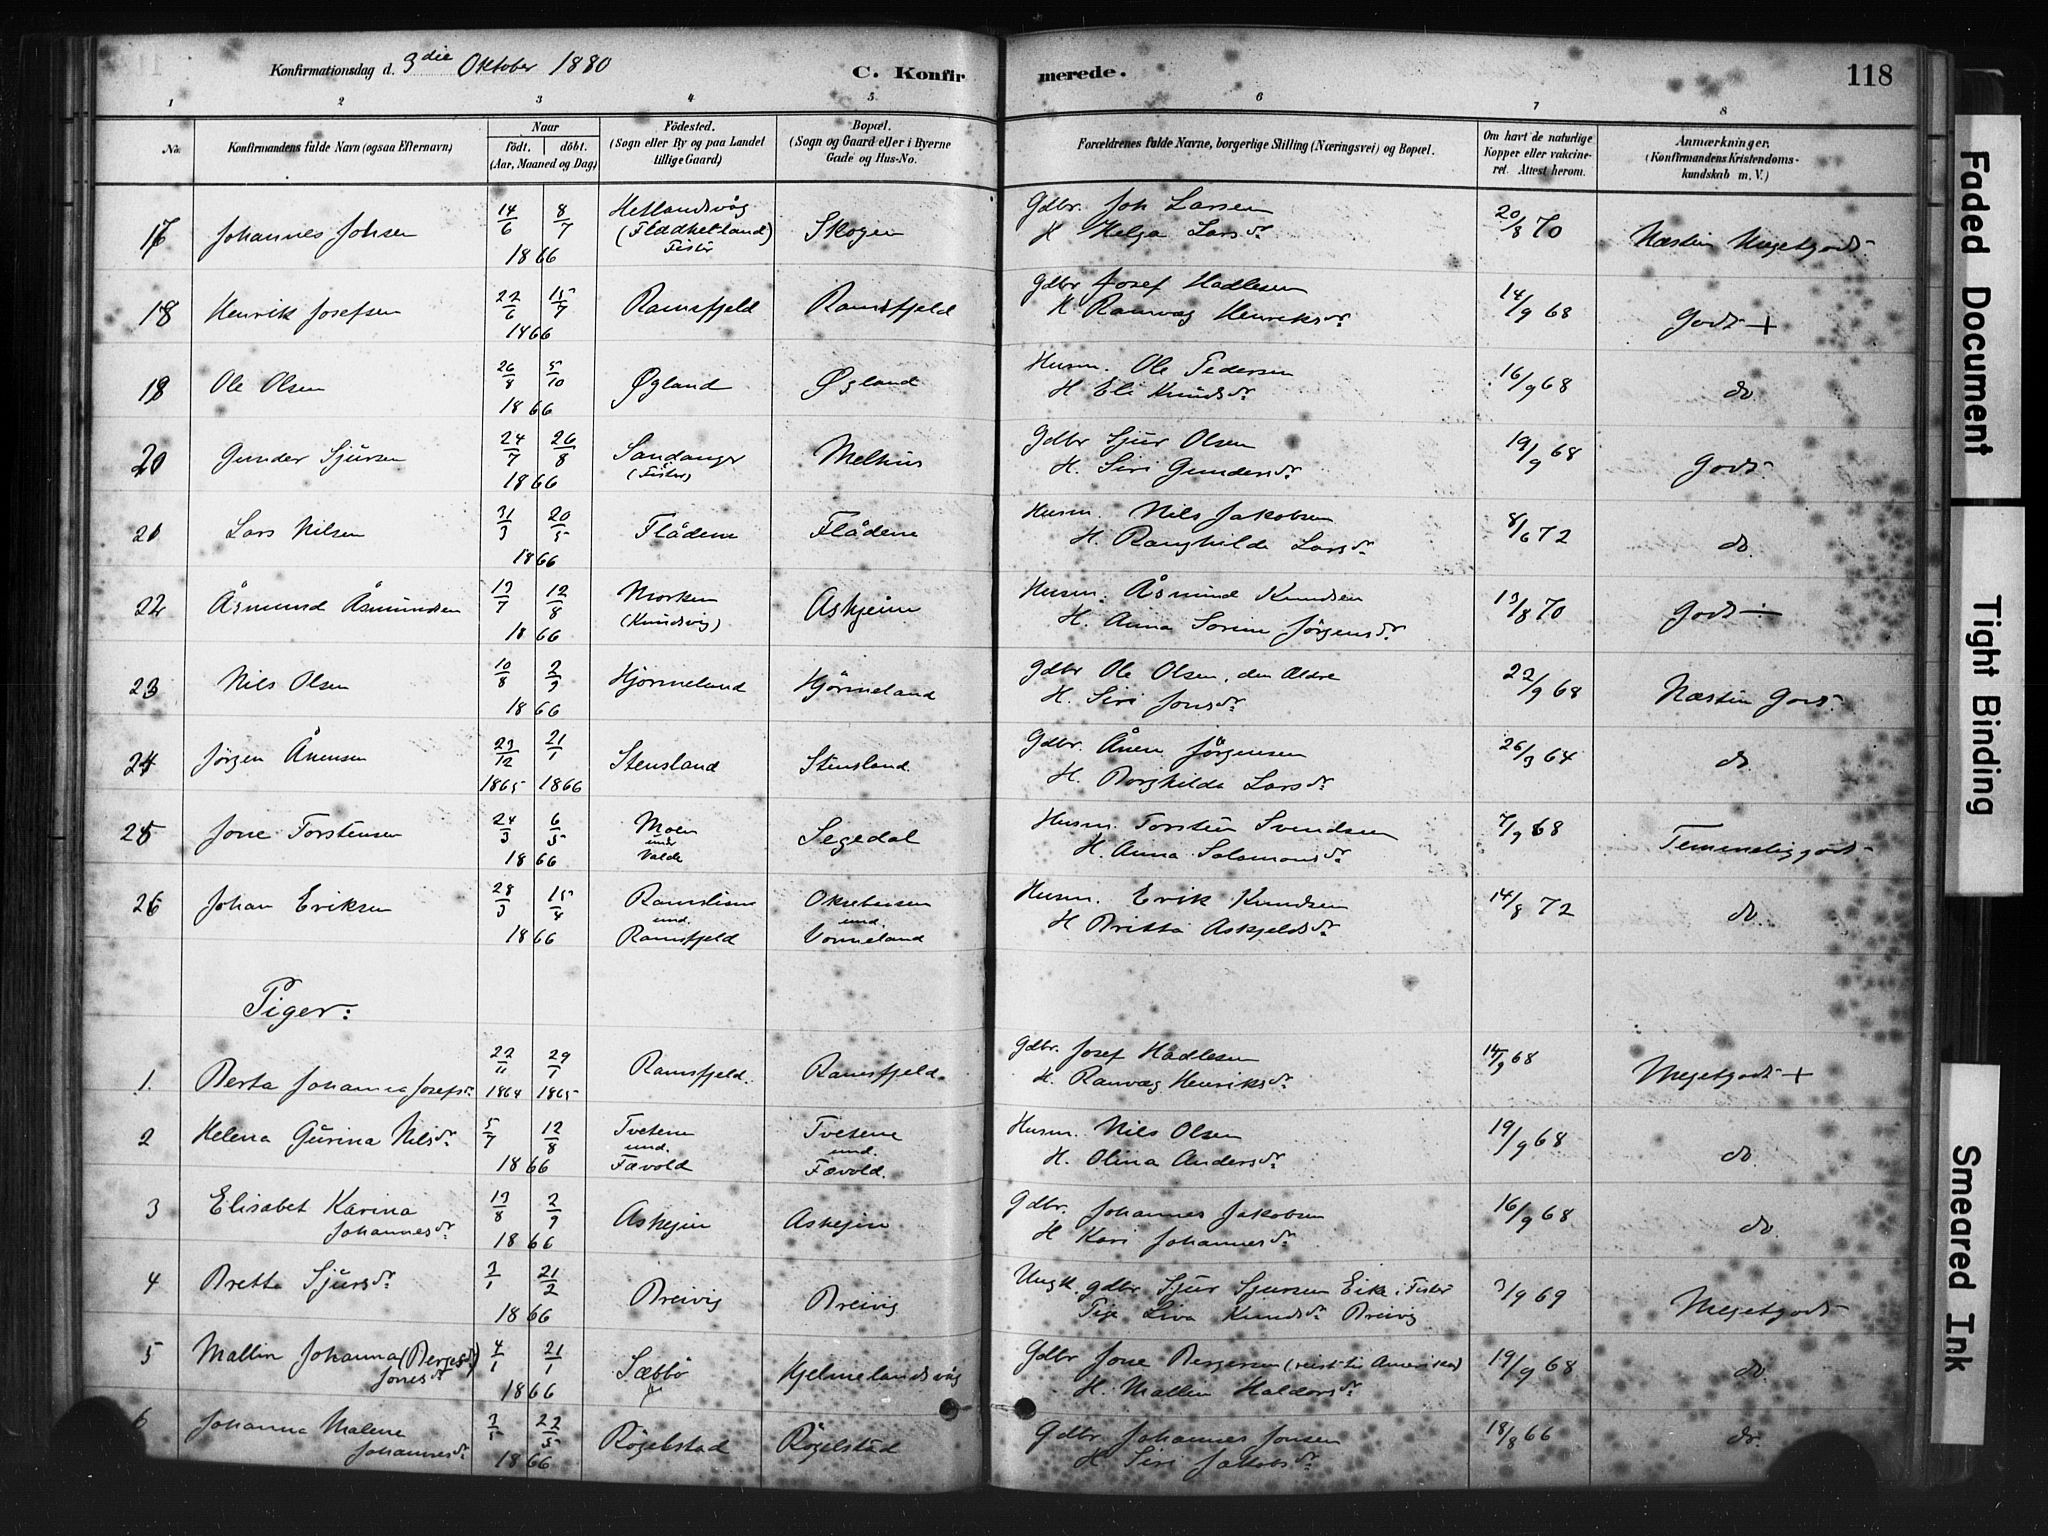 Konfirmationsdag d. 3die Oktober 1880
C. Konfirmerede.
118
1 2 3 4 5 6 7 8
No. Konfirmandens fulde Navn (ogsaa Efternavn) Naar født. døbt. (Aar, Maaned og Dag) Födested. (Sogn eller By og paa Landet tillige Gaard) Bopæl. (Sogn og Gaard eller i Byerne Gade og Hus-No. Forældrenes fulde Navne, borgerlige Stilling (Næringsvei) og Bopæl. Om havt de naturlige Kopper eller vakcineret. Attest herom. Anmærkninger. (Konfirmandens Kristendomskundskab m. V.)
17 Johannes Johsen 14/6 8/7 1866 Hetlandsvåg (Flødhetland) Fister Skogen Gdbr. Joh Larsen H Helga Larsdr. 20/8 70 Næsten Megetgodt
18 Henrik Josefsen 22/6 15/7 1866 Ramsfjeld Ramsfjeld Gdbr Josef Hadlesen H Ranvæg Henriksdr. 14/9 68 Godt +
19 Ole Olsen 26/8 5/10 1866 Øgland Øgland Husm. Ole Pedersen H. Eli Knudsdr. 16/9 68 do
20 Gunder Sjursen 24/7 26/8 1866 Sandanger (Fister) Melhus Gdbr Sjur Olsen H. Siri Gundersdr. 19/9 68 Godt
21 Lars Nilsen 31/3 20/5 1866 Flådene Flådene Husm. Nils Jakobsen H. Ranghilda Larsdr. 8/6 72 do.
22 Åsmund Åsmundsen 13/7 12/8 1866 Morken (Knudsvig) Askjeim Husm. Åsmund Knudsen H. Anna Sorine Jørgensdr. 13/8 70 Godt ÷
23 Nils Olsen 10/8 2/9 1866 Hjörmeland Hjörmeland Gdbr Ole Olsen, den Ældre H. Siri Jonsdr. 22/9 68 Næsten Godt.
24 Jörgen Ånensen 23/12 1865 21/1 1866 Stensland Stensland. Gdbr. Ånen Jörgensen H. Borghilda Larsdr. 26/3 64 do
25 Jone Torstensen 24/3 6/5 1866 Moen under Valde Segedal Husm. Torsten Svendsen H. Anna Salamonsdr. 7/9 68 Temmeliggodt
26 Johan Eriksen 28/3 15/4 1866 und. Ramsfjeld und. Vormeland Husm. Erik Knudsen H Britta Askjeldsdr. 14/8 72 do.
Piger:
1. Berta Johanna Josefsdr. 22/11 1864 29/1 1865 Ramsfjeld. Ramsfjeld. Gdbr. Josef Hadlesen H. Ranvæg Henriksdr. 14/9 68 Megetgodt +
2 Helena Gurina Nilsdr. 5/7 12/8 1866 Tvetene und. Fævold Tvetene und. Fævold. Husm. Nils Olsen H. Olina Andersdr. 19/9 68 do.
3 Elisabet Karina Johannesdr. 13/8 2/9 1866 Askjein Askjein Gdbr. Johannes Jakobsen H Kari Johannesdr. 16/9 68 do.
4 Bretta Sjursdr. 3/1 21/2 1866 Breivig Breivig Ungk. gdbr Sjur Sjursen Eike i Fister Pige Liva Knudsdr. Breivig 3/9 69 Megetgodt
5 Mallin Johanna (Bergesdr) Jonesdr 4/1 21/1 1866 Sæbbö Hjelmelandsvåg Gdbr Jone Bergersen (reist til Amerika) H. Mallin Haldorsdr. 19/9 68 do.
6 Johanna Malene Johannesdr. 3/5 22/5 1866 Rögelstad Rögelstad Gdbr Johannes Jonsen H Siri Jakobsdr. 18/8 66 do.
Faded Document
Tight Binding
Smeared Ink